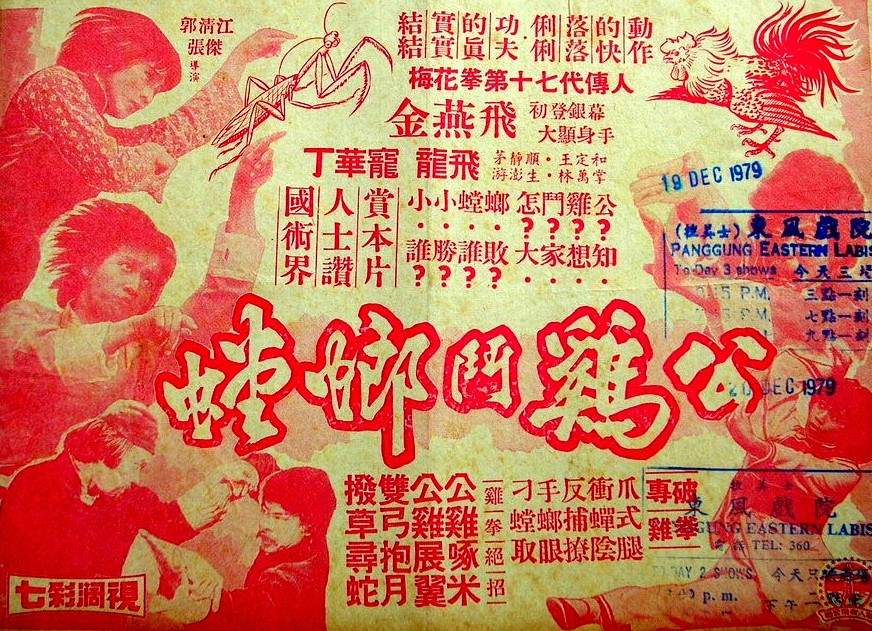 郭清江
張傑
導演
結結實實的眞功夫
俐俐落落的快動作
梅花拳第十七代傳人
金燕飛
初登銀幕
大顯身手
丁華寵 龍飛
茅靜順·王定和
游澎生·林萬掌
國術界
人士讚
賞本片
小小螳螂 怎鬥雞公
．．．．？？？？
誰勝誰敗 大家想知
？？？？．．．．
螳螂鬥雞公
撥草尋蛇
雙弓抱月
公雞展翼
公雞啄米
雞拳絕招
刁手反衝爪
螳螂捕蟬式
取眼撩陰腿
專破
雞拳
七彩濶視
19 DEC 1979
東風戲院
PANGGUNG EASTERN LABIS
To-Day 3 shows 今天三場
P.M. 三點一刻
P.M. 七點一刻
九點一刻
DEC 1979
東風戲院
EASTERN LABIS
TEL: 360
DAY 2 SHOWS
p.m.